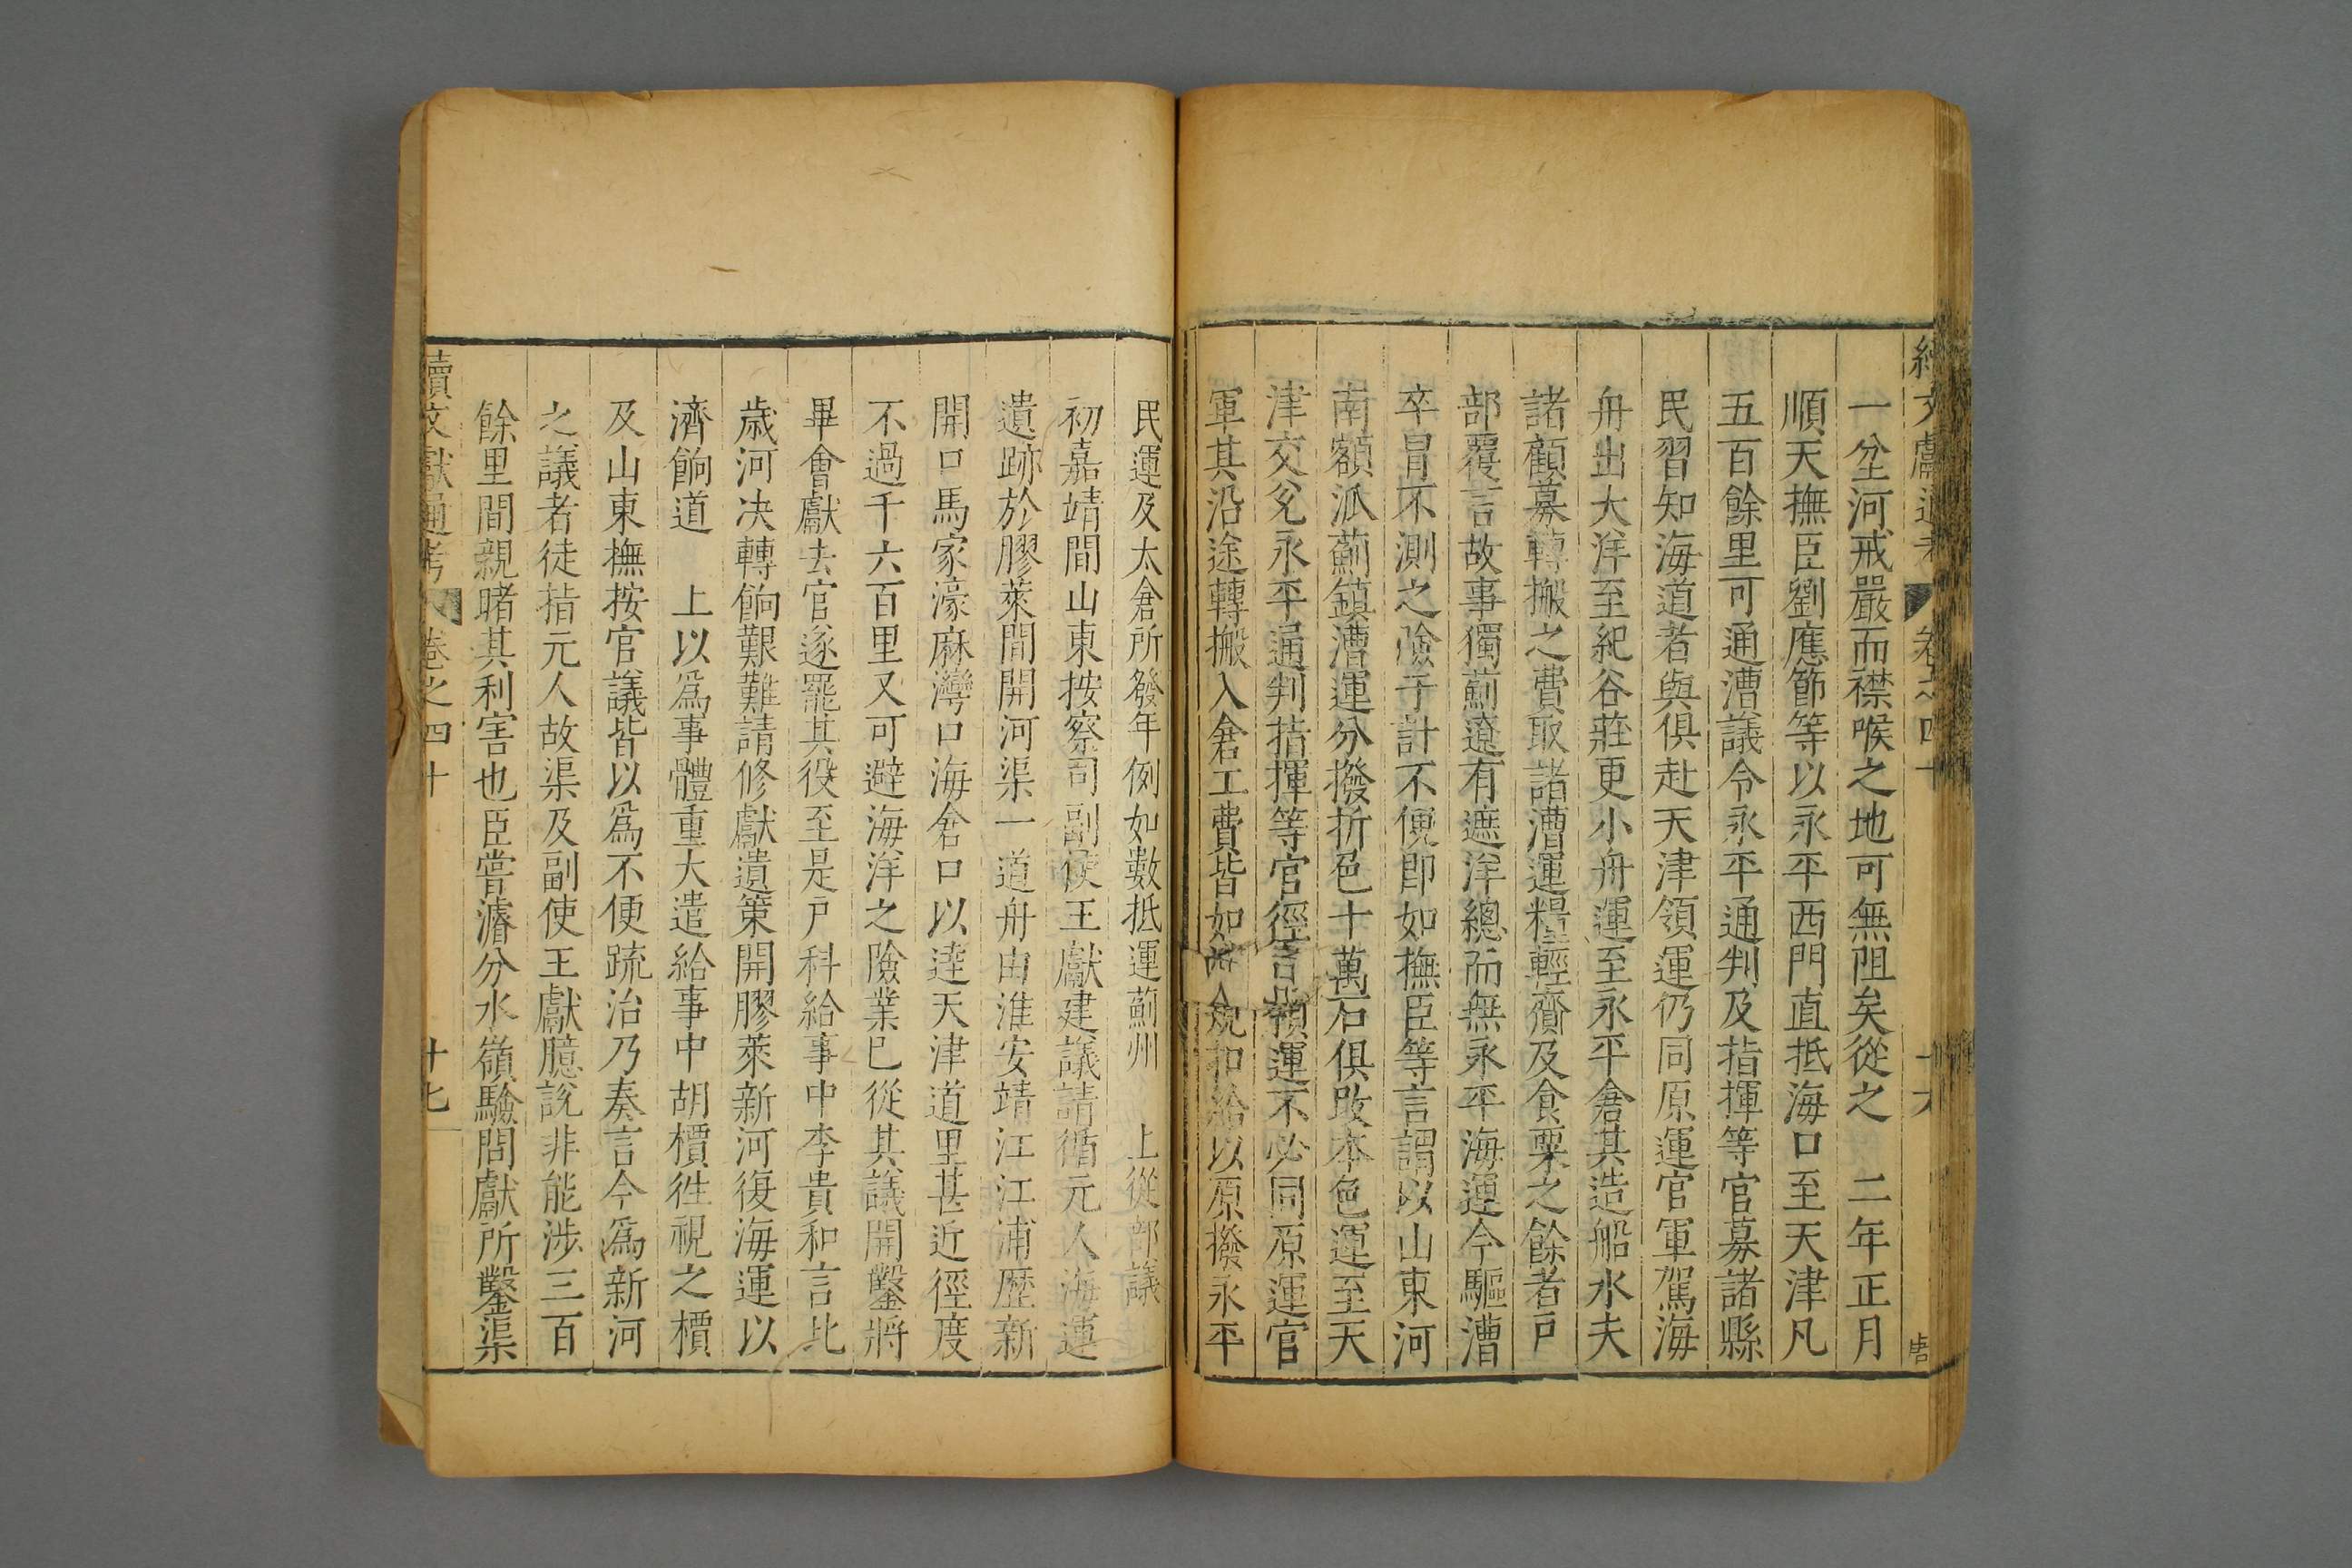 續文獻通考 卷之四十 十六
一坌河戒嚴而襟喉之地可無阻矣從之 二年正月
順天撫臣劉應節等以永平西門直抵海口至天津凡
五百餘里可通漕議令永平通判及指揮等官募諸縣
民習知海道者與俱赴天津領運仍同原運官軍駕海
舟出大洋至紀各莊更小舟運至永平倉其造船水夫
諸顧募轉搬之費取諸漕運糧輕齎及食粟之餘者戶
部覆言故事獨薊遼有遮洋總而無永平海運今驅漕
卒冒不測之險于計不便即如撫臣等言謂以山東河
南額派薊鎮漕運分撥折色十萬石俱改本色運至天
津交兌永平通判指揮等官徑領運不必同原運官
軍其沿途轉搬入倉工費皆如 規扣給以原撥永平
民運及太倉所發年例如數抵運薊州 上從部議
初嘉靖間山東按察司副使王獻建議請循元人海運
遺跡於膠萊間開河渠一道舟由淮安靖江江浦歷新
開口馬家濠麻灣口海倉口以達天津道里甚近徑度
不過千六百里又可避海洋之險業已從其議開鑿將
畢會獻去官遂罷其役至是戶科給事中李貴和言比
歲河决轉餉艱難請修獻遺策開膠萊新河復海運以
濟餉道 上以爲事體重大遣給事中胡檟徃視之檟
及山東撫按官議皆以爲不便䟽治乃奏言今爲新河
之議者徒指元人故渠及副使王獻臆說非能涉三百
餘里間親睹其利害也臣嘗濬分水嶺驗問獻所鑿渠
續文獻通考 卷之四十 廿七